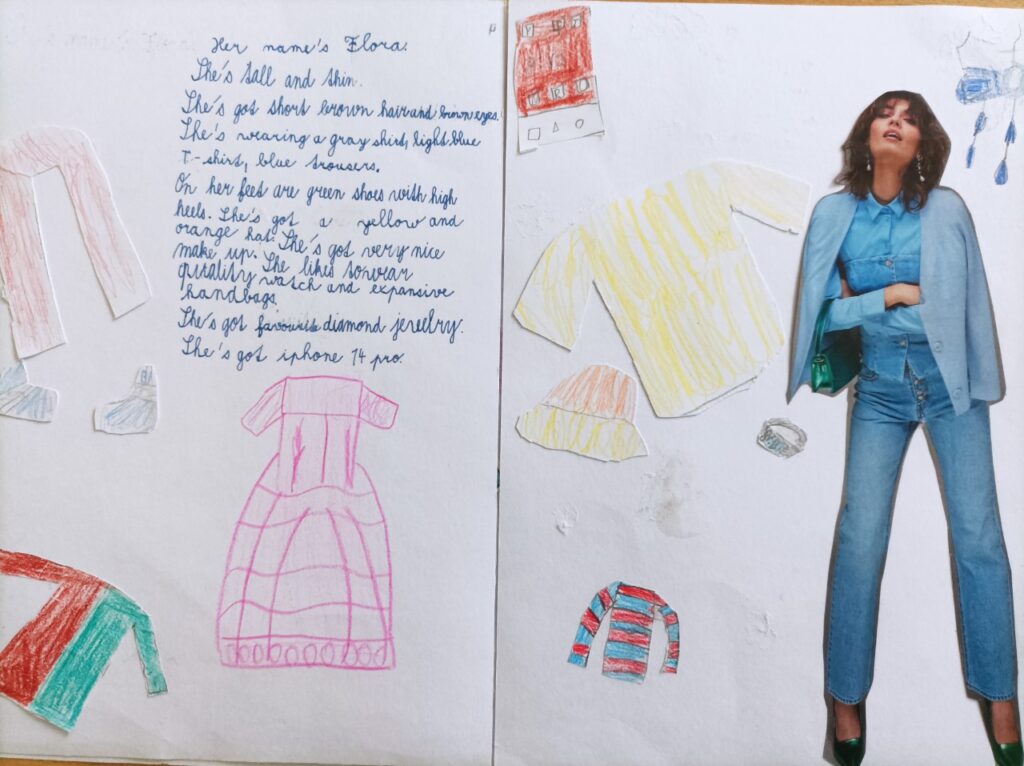 Her name's Flora.
She's tall and thin.
She's got short brown hair and brown eyes.
She's wearing a gray shirt, light blue
T-shirt, blue trousers.
On her feet are green shoes with high
heels. She's got a yellow and
orange hat. She's got very nice
make up. She likes to wear
quality watch and expansive
handbags.
She's got favourite diamond jewelry.
She's got iphone 14 pro.